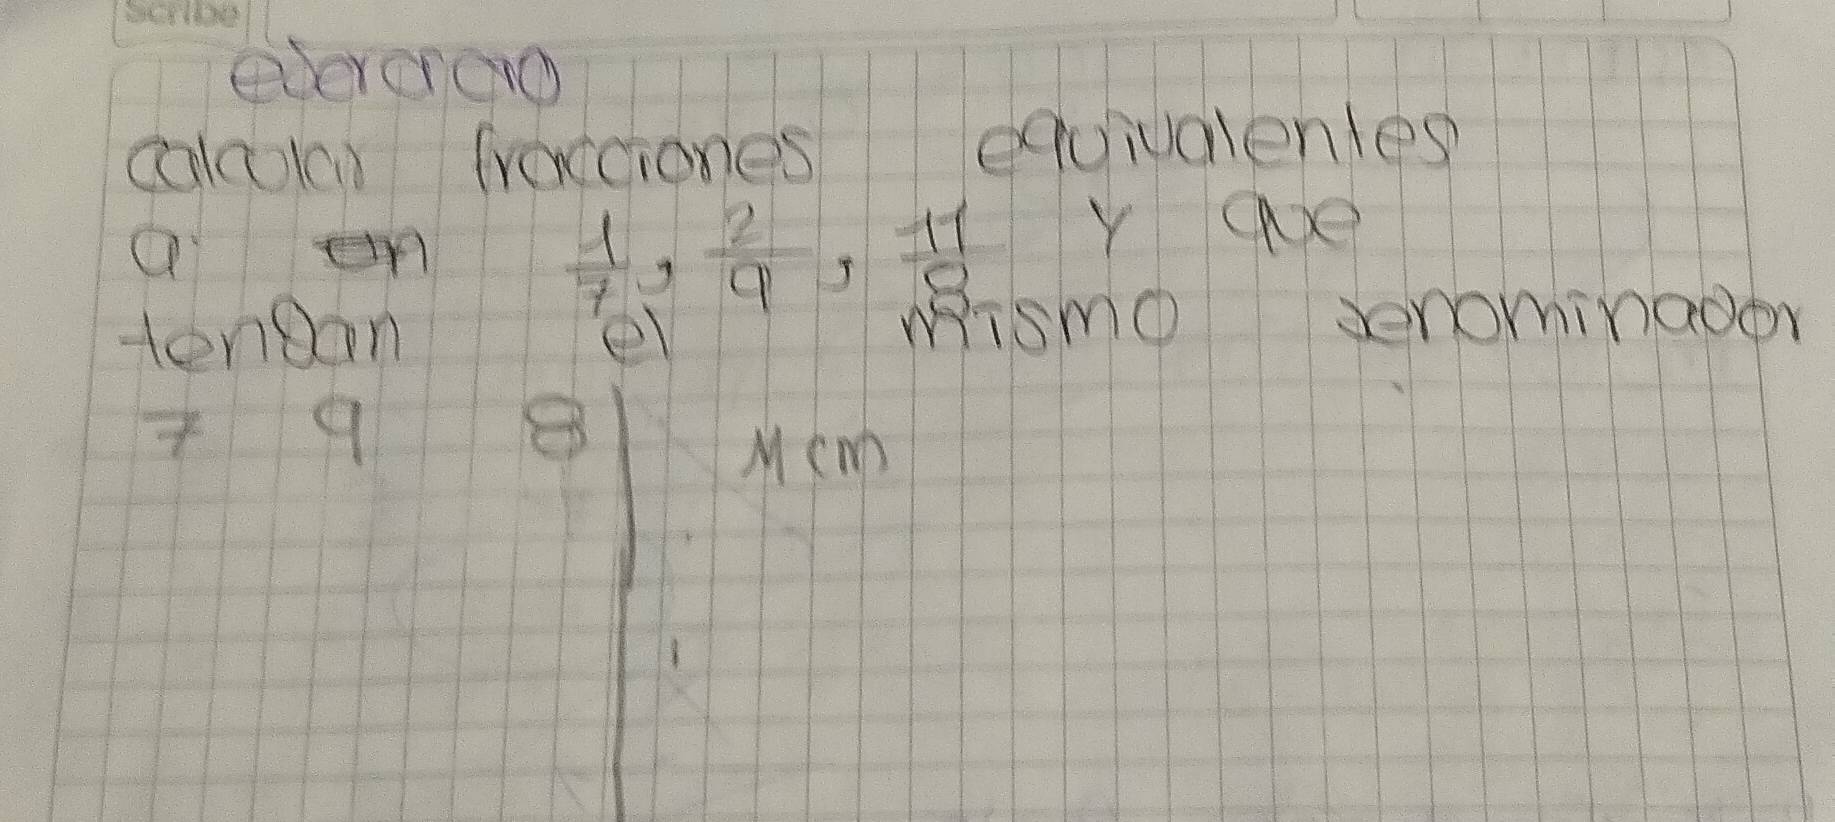 Scribe
ejercicio
calcular fracciones equivalentes
a en 1/7, 2/9, 11/8 y que
tengan el mismo denominador
7 9 8 | Mcm